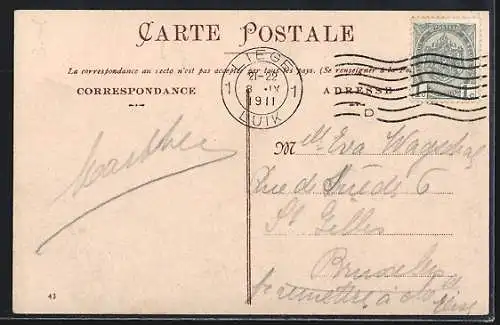 CARTE POSTALE
La correspondance au recto n'est pas acceptée par tous les pays. (Se renseigner à la Po
CORRESPONDANCE
ADRESSE
LIÈGE
1 21-22 1
8 IX
1911
LUIK
D
1 c 1 c
Marthe
M Eva
Rue de Suède 6
St Gilles
Bruxelles
43